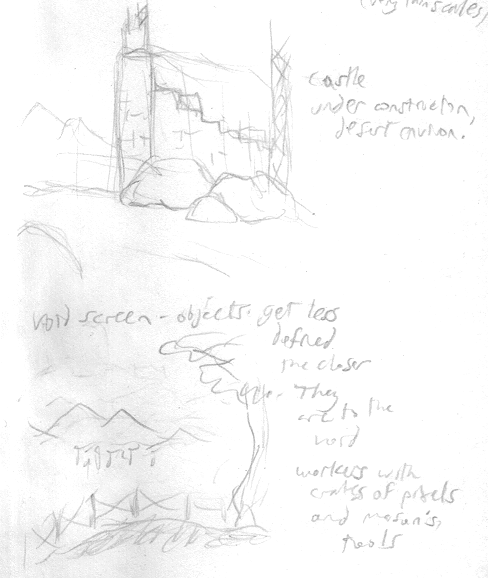 (very thin scales)
castle
under construction,
desert environ.
void screen - objects get less
defined
the closer
They
are to the
void
workers with
crates of pixels
and mason's
tools